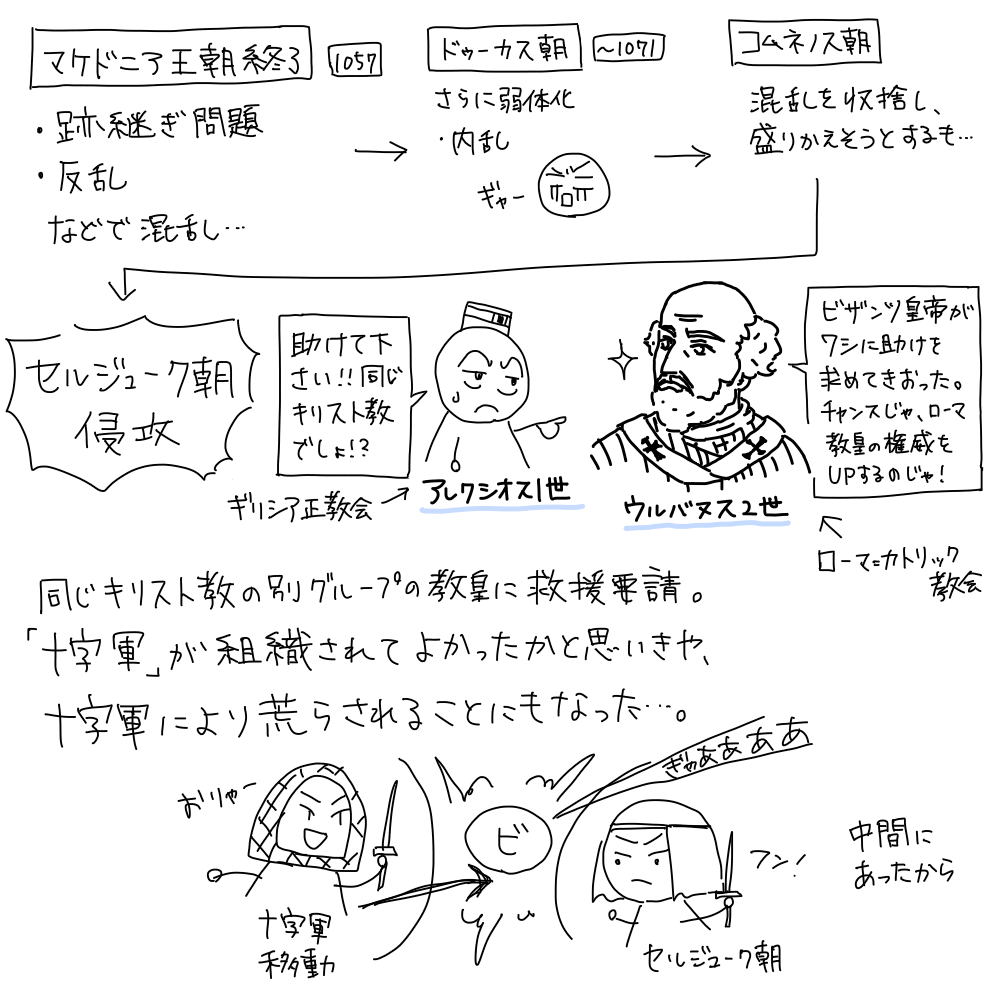 マケドニア王朝終了
1057
・跡継ぎ問題
・反乱
などで混乱し…
ドゥーカス朝
〜1071
さらに弱体化
・内乱
ギャー
コムネノス朝
混乱を収捨し、
盛りかえそうとするも…
セルジューク朝
侵攻
助けて下
さい!!同じ
キリスト教
でしょ!?
アレクシオス1世
ギリシア正教会
ウルバヌス2世
ビザンツ皇帝が
ワシに助けを
求めてきおった。
チャンスじゃ、ローマ
教皇の権威を
UPするのじゃ!
ローマ=カトリック
教会
同じキリスト教の別グループの教皇に救援要請。
「十字軍」が組織されてよかったかと思いきや、
十字軍により荒らされることにもなった…。
おりゃー
ビ
ぎゃあああああ
フン!
中間に
あったから
十字軍
移動
セルジューク朝